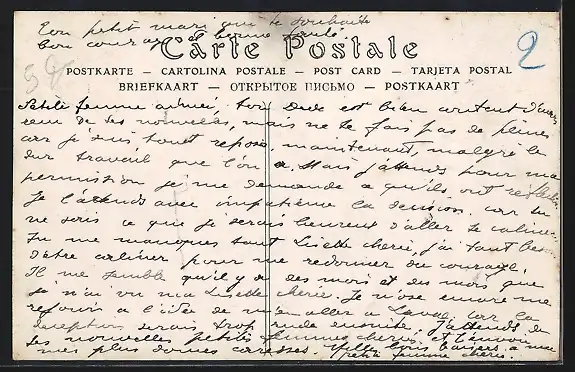 Ton petit mari qui te souhaite
bon courage et bonne santé.
Carte Postale
POSTKARTE — CARTOLINA POSTALE — POST CARD — TARJETA POSTAL
BRIEFKAART — ОТКРЫТОЕ ПИСЬМО — POSTKAART
2
Petite femme aimée, ton Dede est bien content d'avoir
reçu de tes nouvelles, mais ne te fais pas de peines
car je suis tout reposé, maintenant, malgré le
dur travail que l'on a. Mais j'attends pour ma
permission je me demande ce qu'ils ont
Je l'attends avec impatience la decision. car tu
ne sais ce que je serais heureux d'aller te caliner
Tu me manques tant Lisette cherie, j'ai tant besoin
d'être caliner pour me redonner du courage.
Il me semble qu'il y a des mois et des mois que
je n'ai vu ma Lisette cherie. Je n'ose encore me
rejouir a l'idée de m'en aller a Laval, car la
deception serais trop rude ensuite. J'attends de
tes nouvelles petite femme cherie, et t'envoie
mes plus douces caresses. Mille bons baisers a ma
petite femme cherie.